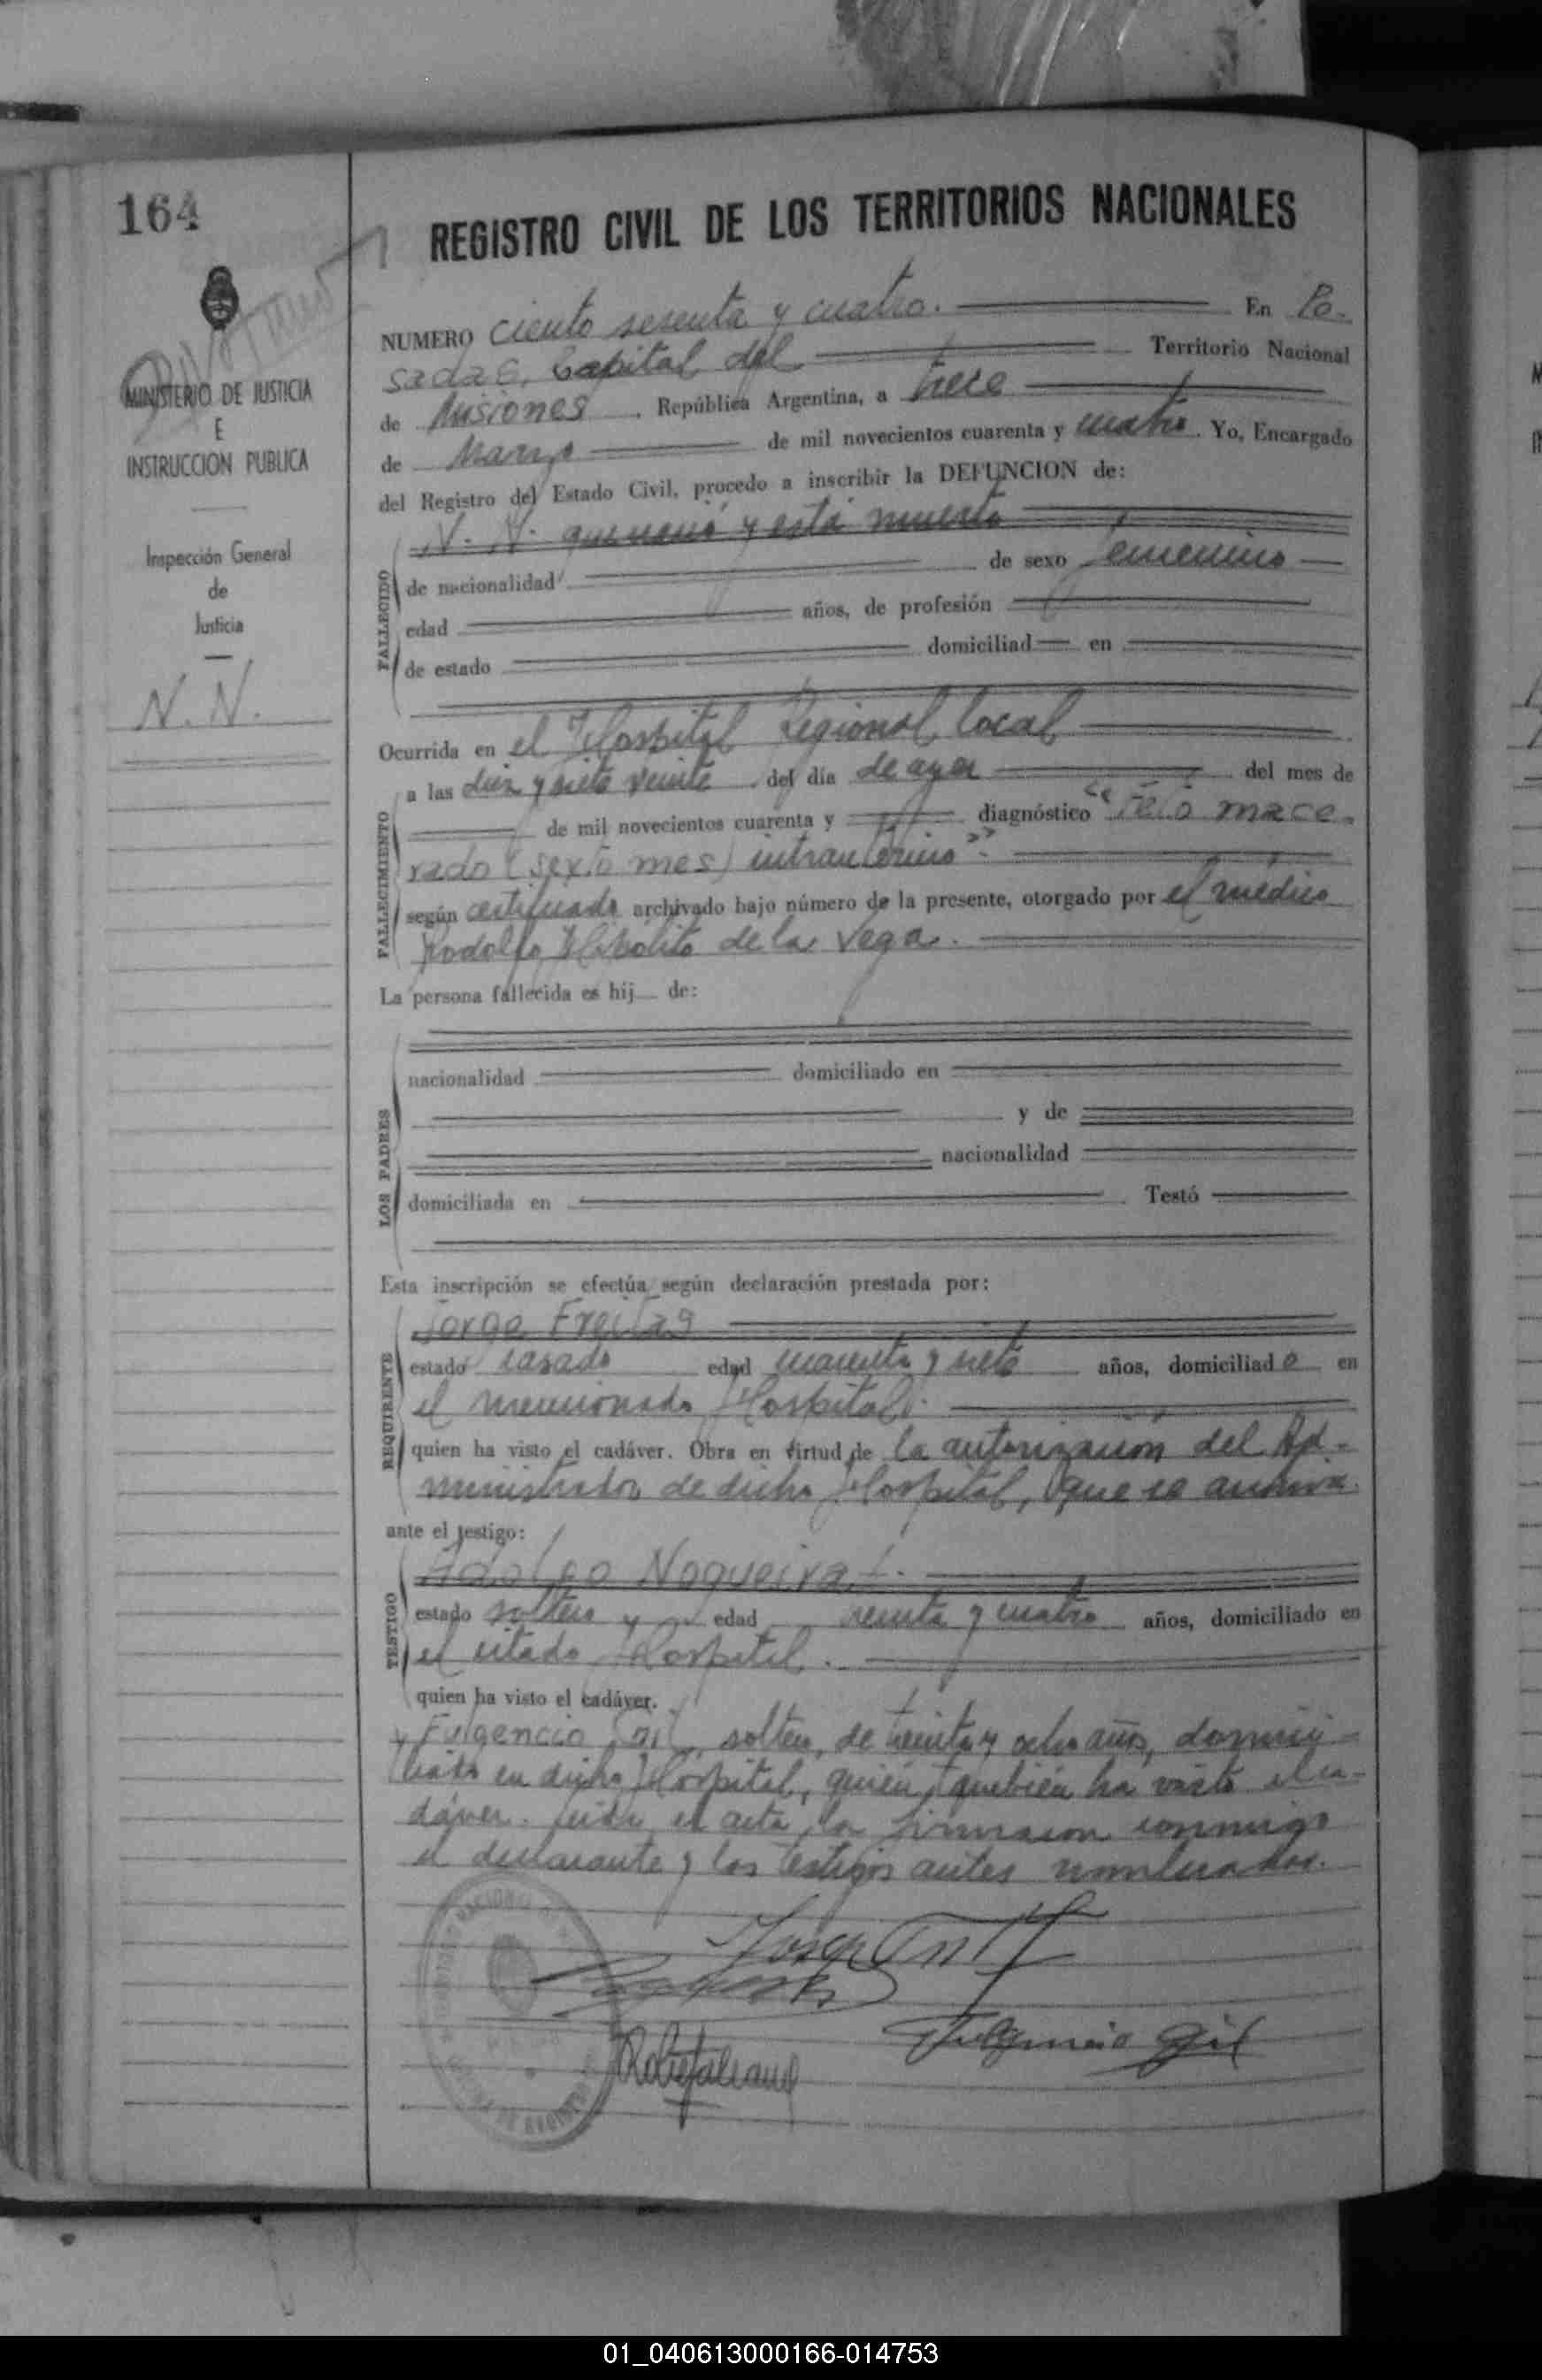 164
REGISTRO CIVIL DE LOS TERRITORIOS NACIONALES
NUMERO ciento sesenta y cuatro. En Po-
sadas, Capital del Territorio Nacional
de Misiones. República Argentina, a trece
de Marzo de mil novecientos cuarenta y cuatro. Yo, Encargado
del Registro del Estado Civil, procedo a inscribir la DEFUNCION de:
MINISTERIO DE JUSTICIA
E
INSTRUCCION PUBLICA
Inspección General
de
Justicia
N. N.
FALLECIDO
N. N. que nació y está muerto
de nacionalidad de sexo femenino
edad años, de profesión
de estado domiciliad en
Ocurrida en el Hospital Regional local
FALLECIMIENTO
a las diez y siete veinte del día de ayer del mes de
de mil novecientos cuarenta y diagnóstico "Feto mace-
rado (sexto mes) intrauterino".
según certificado archivado bajo número de la presente, otorgado por el médico
Rodolfo Hipólito de la Vega.
La persona fallecida es hij de:
LOS PADRES
nacionalidad domiciliado en
y de
nacionalidad
domiciliada en Testó
Esta inscripción se efectúa según declaración prestada por:
REQUIRENTE
Jorge Freitas
estado casado edad cuarenta y siete años, domiciliado en
el mencionado Hospital.
quien ha visto el cadáver. Obra en virtud de la autorización del Ad-
ministrador de dicho Hospital, que se archiva.
ante el testigo:
TESTIGO
Adolfo Nogueira
estado soltero y edad años, domiciliado en
el citado Hospital.
quien ha visto el cadáver.
y Fulgencio Gil, soltero, de treinta y ocho años, domici-
liado en dicho Hospital, quien también ha visto el ca-
dáver. Leída el acta, la firmaron conmigo
el declarante y los testigos antes nombrados.
Fulgencio Gil
01_040613000166-014753